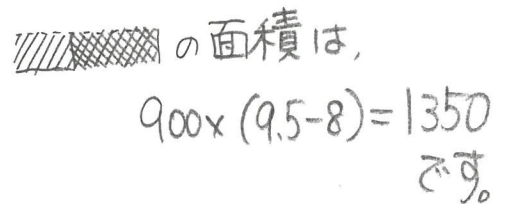 の面積は,
900×(9.5-8)=1350
です。